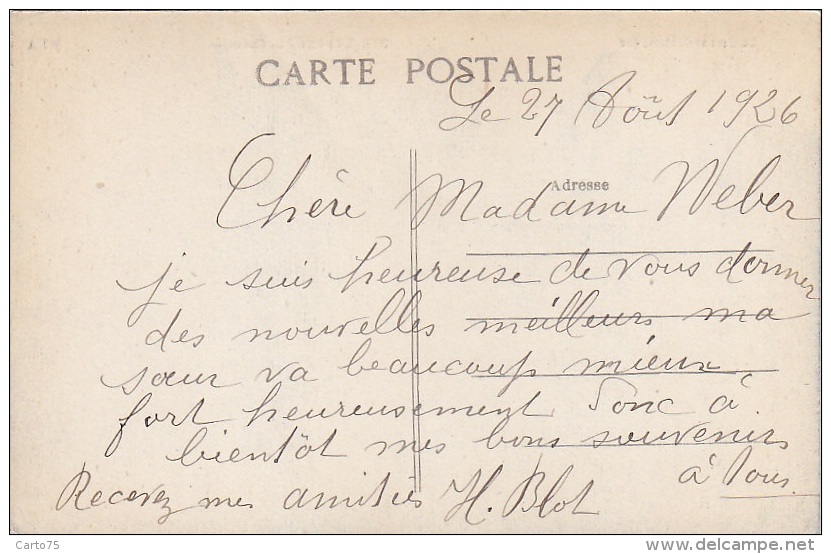 CARTE POSTALE
Le 27 Août 1926
Adresse
Chère Madame Weber
je suis heureuse de vous donner
des nouvelles meilleurs ma
sœur va beaucoup mieux
fort heureusement Donc à
bientôt mes bons souvenirs
à Tous.
Recevez mes amitiés H. Blot
Carto75
www.delcampe.net